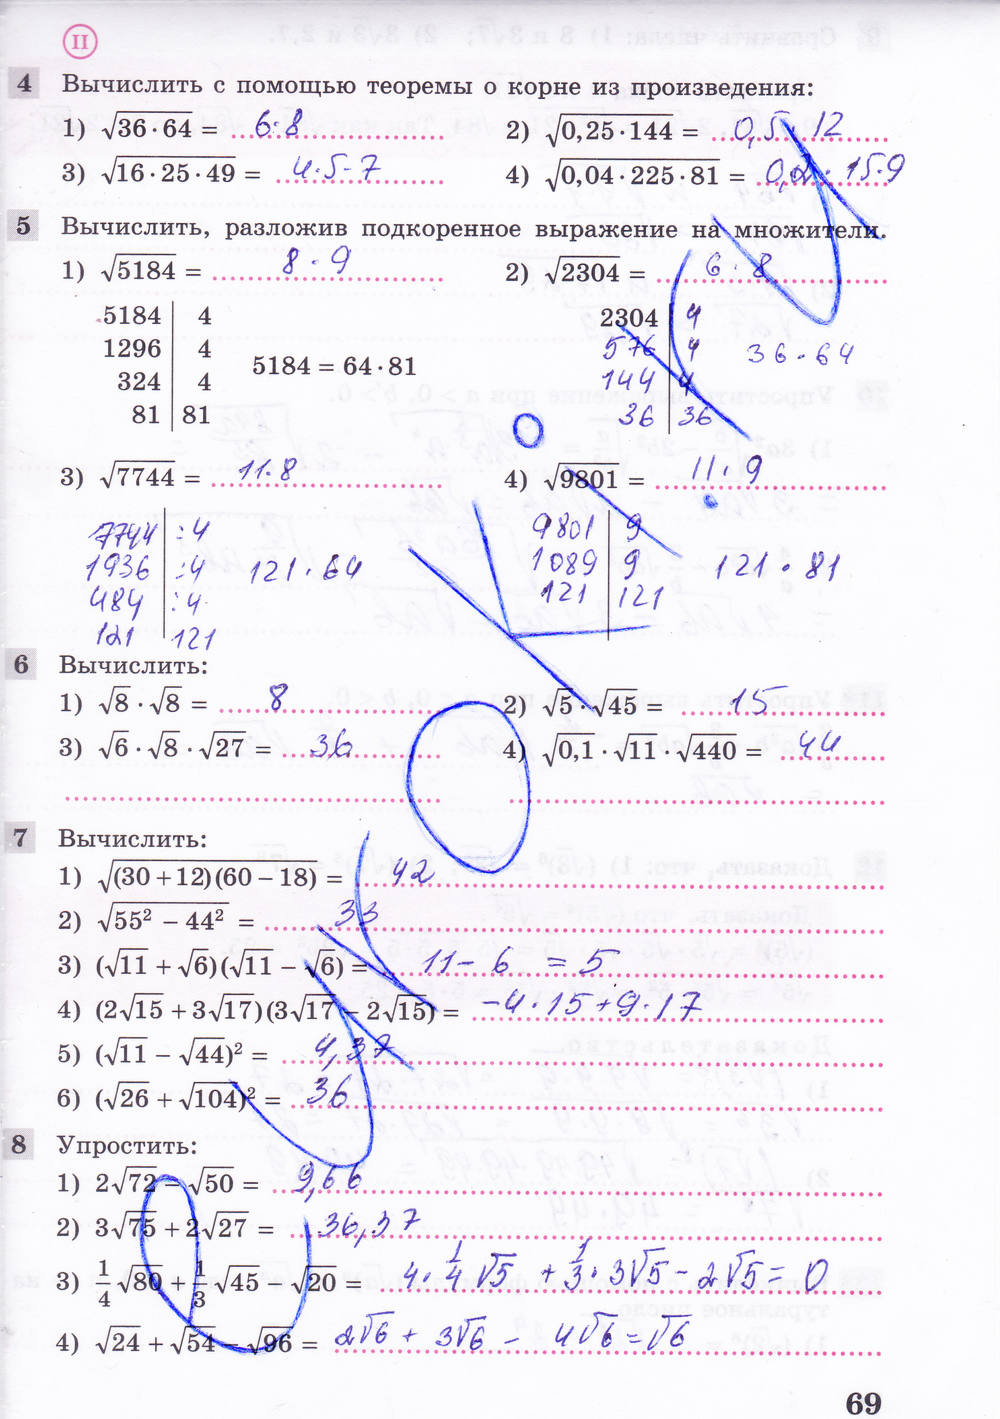 II
4 Вычислить с помощью теоремы о корне из произведения:
1) √36 · 64 = 6·8
2) √0,25 · 144 = 0,5 · 12
3) √16 · 25 · 49 = 4·5·7
4) √0,04 · 225 · 81 = 0,2 · 15·9
5 Вычислить, разложив подкоренное выражение на множители.
1) √5184 = 8 · 9
2) √2304 = 6 · 8
5184 | 4
1296 | 4
324 | 4
81 | 81
5184 = 64 · 81
2304 | 4
576 | 4
144 | 4
36 | 36
36 · 64
3) √7744 = 11·8
4) √9801 = 11 · 9
7744 | :4
1936 | :4
484 | :4
121 | 121
121 · 64
9801 | 9
1089 | 9
121 | 121
121 · 81
6 Вычислить:
1) √8 · √8 = 8
2) √5 · √45 = 15
3) √6 · √8 · √27 = 36
4) √0,1 · √11 · √440 = 44
7 Вычислить:
1) √(30 + 12)(60 − 18) = 42
2) √55² − 44² = 33
3) (√11 + √6)(√11 − √6) = 11 − 6 = 5
4) (2√15 + 3√17)(3√17 − 2√15) = −4·15+9·17
5) (√11 − √44)² = 4,37
6) (√26 + √104)² = 36
8 Упростить:
1) 2√72 − √50 = 9,66
2) 3√75 + 2√27 = 36,37
3) 1/4 √80 + 1/3 √45 − √20 = 4· 1/4 √5 + 1/3 · 3√5 − 2√5 = 0
4) √24 + √54 − √96 = 2√6 + 3√6 − 4√6 = √6
69